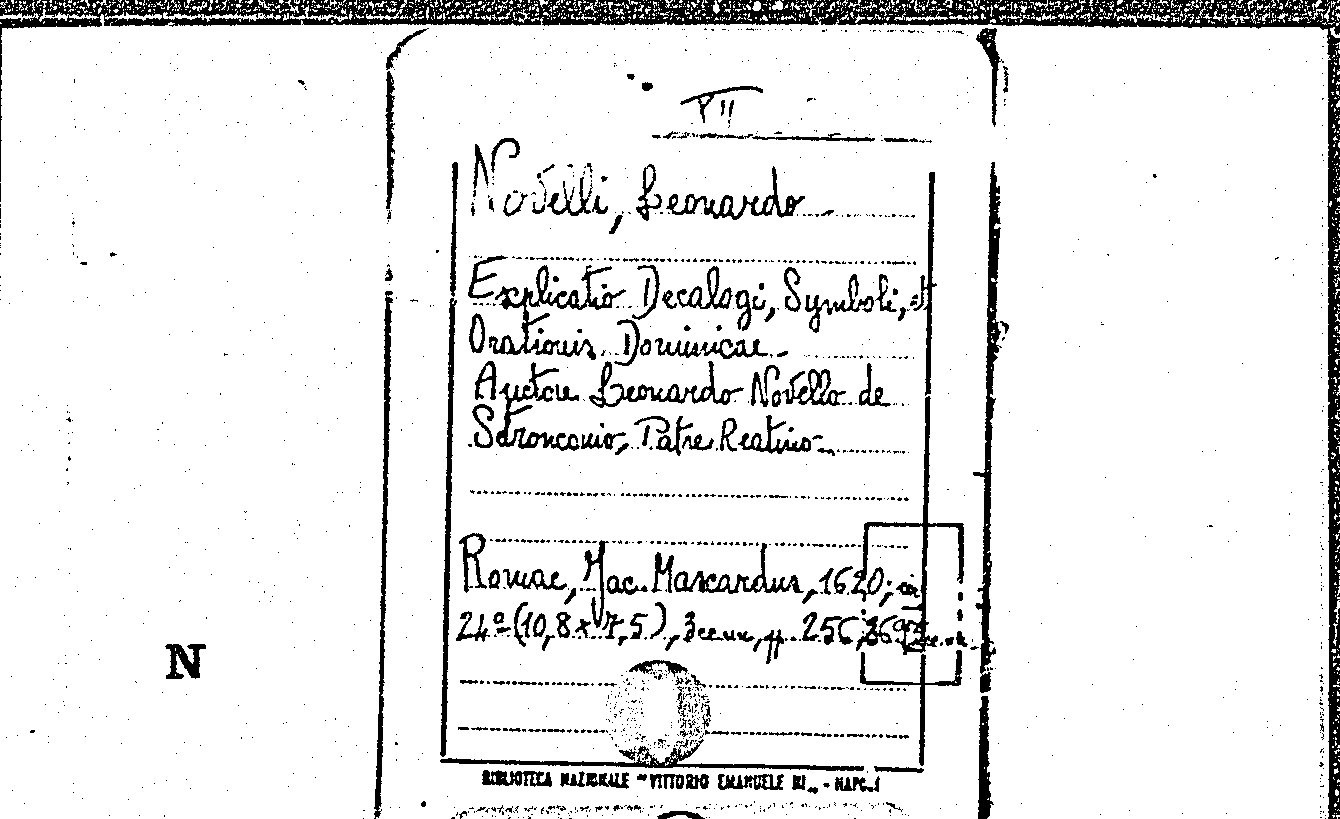 Novelli, Leonardo
Explicatio Decalogi, Symboli, et
Orationis Dominicae.
Auctore Leonardo Novello de
Stronconio, Patre Reatino.
Romae, Jac. Mascardus, 1620; in
24º (10,8 x 7,5), 3 cc nn, pp. 256,
N
BIBLIOTECA NAZIONALE "VITTORIO EMANUELE III" - NAPOLI